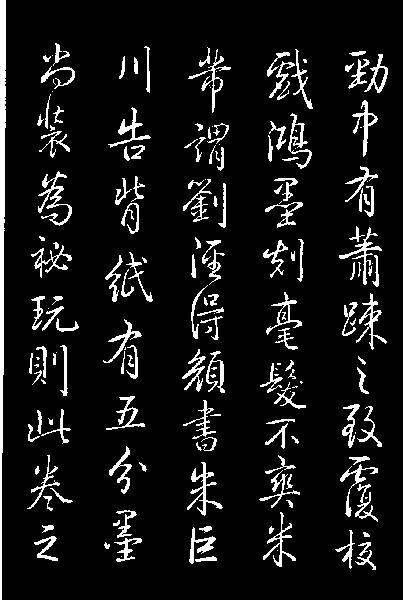 勁中有蕭疎之致覆校
戲鴻墨刻毫髮不爽米
芾謂劉涇得顏書朱巨
川告背紙有五分墨
尚裝為祕玩則此卷之